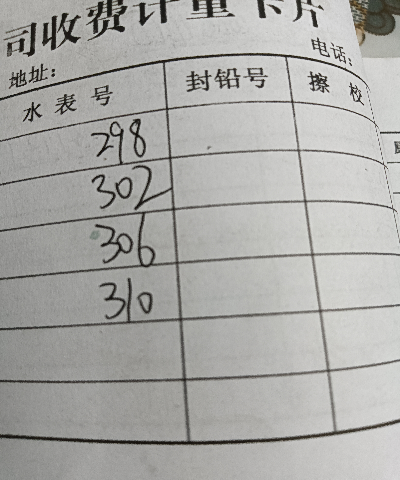 司收费计量卡片
电话:
地址:
水表号 封铅号 擦校
298
302
306
310